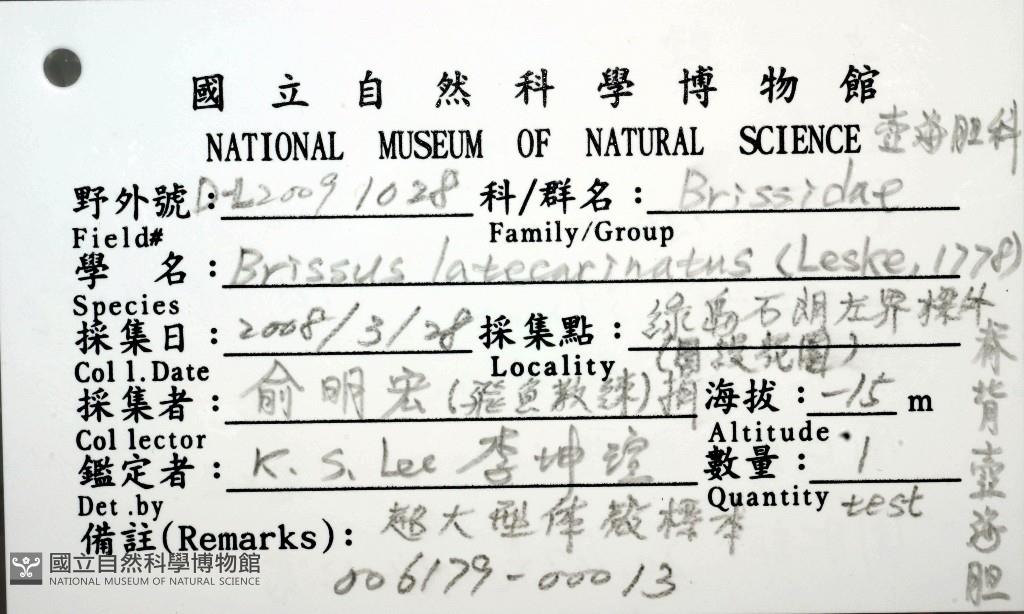 國立自然科學博物館
NATIONAL MUSEUM OF NATURAL SCIENCE 壺海胆科
野外號: D-L20091028 科/群名: Brissidae
Field# Family/Group
學名: Brissus latecarinatus (Leske, 1778)
Species
採集日: 2008/3/28 採集點: 綠島石朗左界標外
Coll.Date Locality
採集者: 俞明宏(飛魚教練) 海拔: -15 m
Collector Altitude
鑑定者: K. S. Lee 李坤瑄 數量: 1
Det.by Quantity test
備註(Remarks): 超大型体殼標本
006179-00013
脊背壺海胆
國立自然科學博物館
NATIONAL MUSEUM OF NATURAL SCIENCE